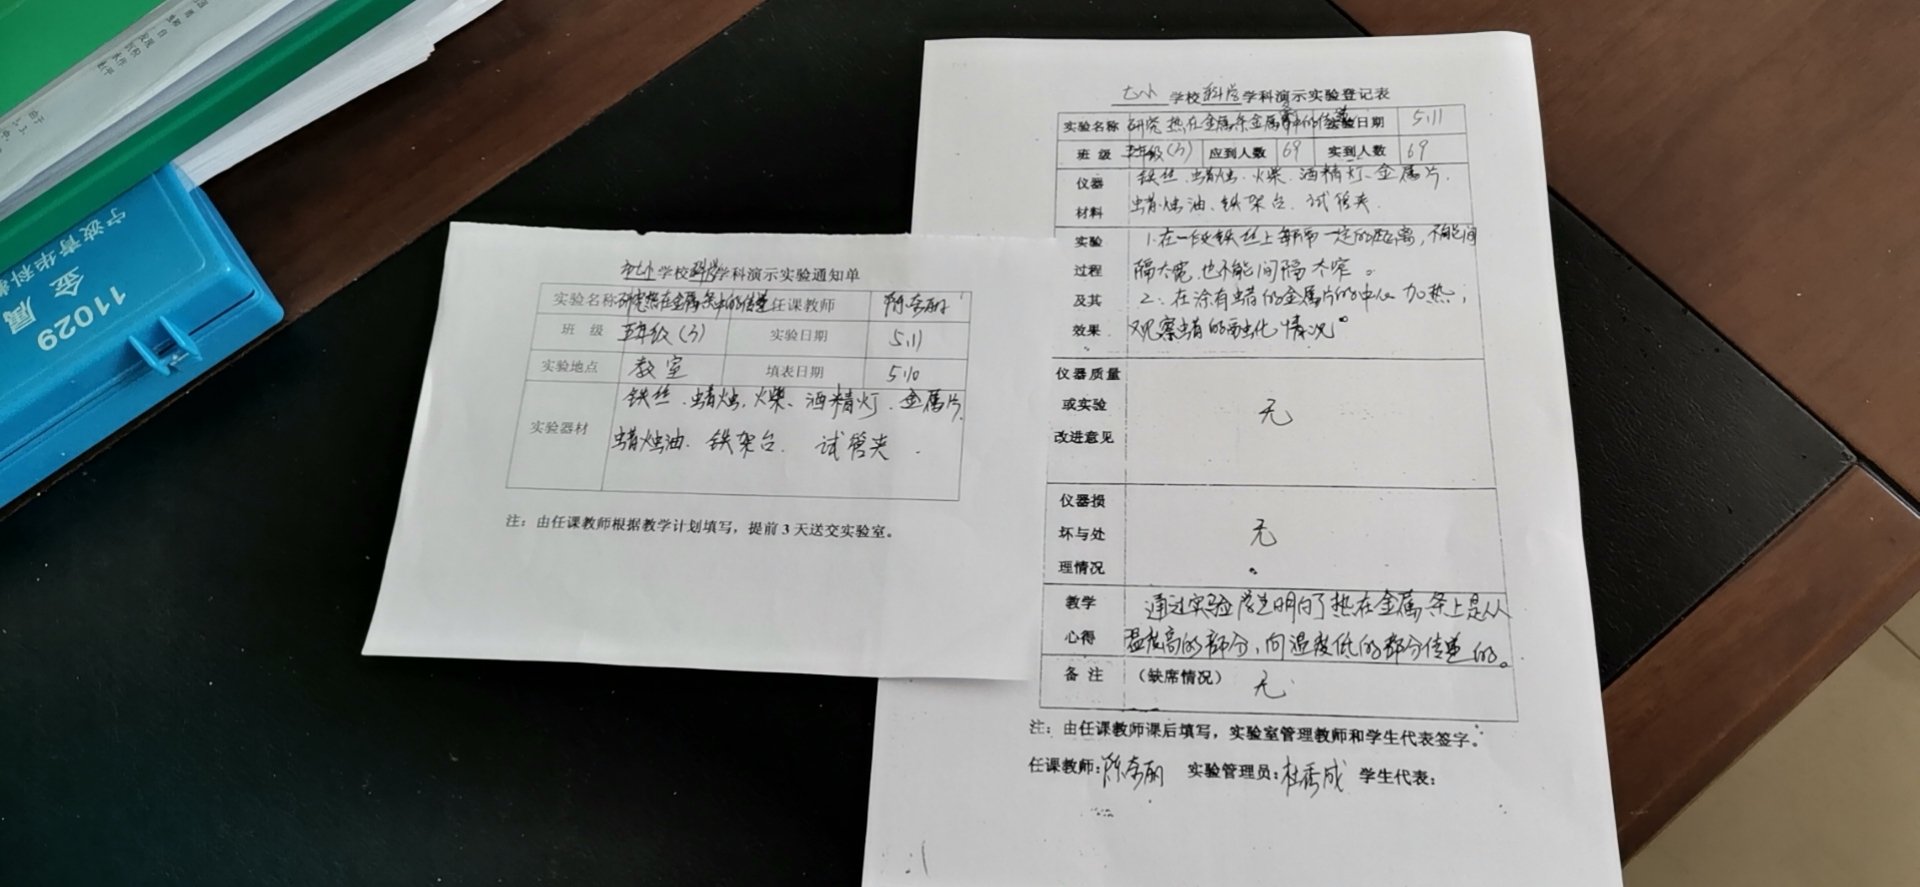 11029
金属
宁波育华科教
市七小学校科学学科演示实验通知单
实验名称 研究热在金属条中的传递 任课教师 陈冬丽
班级 五年级(3) 实验日期 5.11
实验地点 教室 填表日期 5.10
实验器材 铁丝、蜡烛、火柴、酒精灯、金属片、
蜡烛油、铁架台、试管夹.
注：由任课教师根据教学计划填写，提前3天送交实验室。
七小 学校科学学科演示实验登记表
实验名称 研究热在金属条金属片中的传递 实验日期 5.11
班级 五年级(3) 应到人数 69 实到人数 69
仪器 铁丝、蜡烛、火柴、酒精灯、金属片、
材料 蜡烛油、铁架台、试管夹.
实验 1.在一段铁丝上每隔一定的距离,不能间
过程 隔太宽,也不能间隔太窄。
及其 2.在涂有蜡的金属片的中心加热;
效果 观察蜡的融化情况。
仪器质量
或实验 无
改进意见
仪器损
坏与处 无
理情况
教学 通过实验学生明白了热在金属条上是从
心得 温度高的部分,向温度低的部分传递的。
备注 （缺席情况） 无
注：由任课教师课后填写，实验室管理教师和学生代表签字。
任课教师:陈冬丽 实验管理员:杜秀成 学生代表: